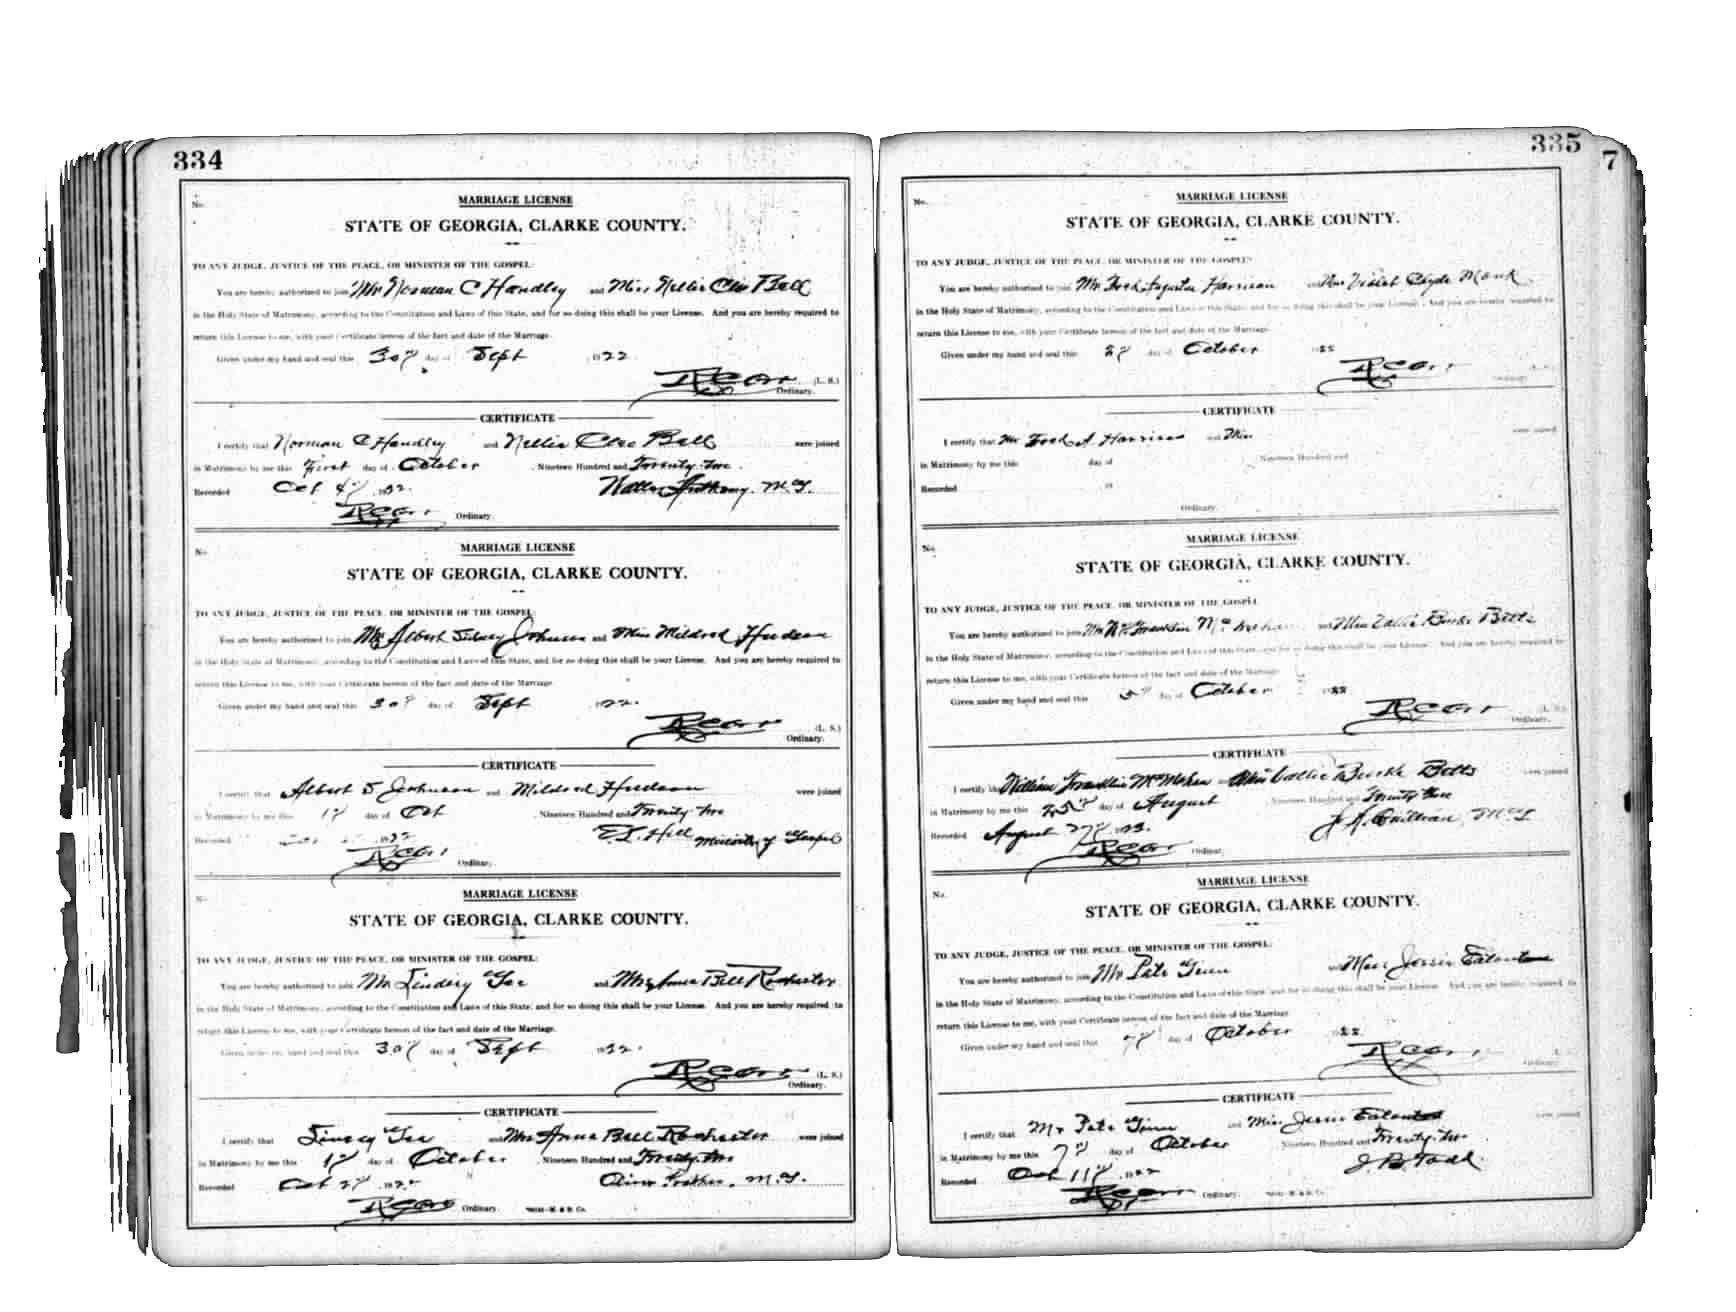 334
No.
MARRIAGE LICENSE
STATE OF GEORGIA, CLARKE COUNTY.
TO ANY JUDGE, JUSTICE OF THE PEACE, OR MINISTER OF THE GOSPEL:
You are hereby authorized to join Mr Norman C Handley and Miss Nellie Cleo Bell
in the Holy State of Matrimony, according to the Constitution and Laws of this State, and for so doing this shall be your License. And you are hereby required to
return this License to me, with your Certificate hereon of the fact and date of the Marriage.
Given under my hand and seal this 30th day of Sept 1922
(L. S.)
Ordinary.
CERTIFICATE
I certify that Norman C Handley and Nellie Cleo Bell were joined
in Matrimony by me this First day of October, Nineteen Hundred and Twenty-two.
Recorded Oct 4th 1922. Walter Anthony, M.G.
Ordinary.
No.
MARRIAGE LICENSE
STATE OF GEORGIA, CLARKE COUNTY.
TO ANY JUDGE, JUSTICE OF THE PEACE, OR MINISTER OF THE GOSPEL:
You are hereby authorized to join Mr Albert Sidney Johnson and Miss Mildred Hudson
in the Holy State of Matrimony, according to the Constitution and Laws of this State, and for so doing this shall be your License. And you are hereby required to
return this License to me, with your Certificate hereon of the fact and date of the Marriage.
Given under my hand and seal this 30th day of Sept 1922.
(L. S.)
Ordinary.
CERTIFICATE
I certify that Albert S Johnson and Mildred Hudson were joined
in Matrimony by me this 1st day of Oct, Nineteen Hundred and Twenty two
Recorded 1922 E. L. Hill Minister of Gospel
Ordinary.
No.
MARRIAGE LICENSE
STATE OF GEORGIA, CLARKE COUNTY.
TO ANY JUDGE, JUSTICE OF THE PEACE, OR MINISTER OF THE GOSPEL:
You are hereby authorized to join Mr Lindsey Gee and Mrs Anna Bell Rochester
in the Holy State of Matrimony, according to the Constitution and Laws of this State, and for so doing this shall be your License. And you are hereby required to
return this License to me, with your Certificate hereon of the fact and date of the Marriage.
Given under my hand and seal this 30th day of Sept 1922.
(L. S.)
Ordinary.
CERTIFICATE
I certify that Linsey Gee and Mrs Anna Bell Rochester were joined
in Matrimony by me this 1st day of October, Nineteen Hundred and Twenty-two
Recorded Oct 2d 1922 M.G.
Ordinary.
335
7
No.
MARRIAGE LICENSE
STATE OF GEORGIA, CLARKE COUNTY.
TO ANY JUDGE, JUSTICE OF THE PEACE, OR MINISTER OF THE GOSPEL:
You are hereby authorized to join Mr Fred Augustus Harrison and Miss Violet Clyde Monk
in the Holy State of Matrimony, according to the Constitution and Laws of this State, and for so doing this shall be your License. And you are hereby required to
return this License to me, with your Certificate hereon of the fact and date of the Marriage.
Given under my hand and seal this 2d day of October 1922
(L. S.)
Ordinary.
CERTIFICATE
I certify that Mr Fred A. Harrison and Miss were joined
in Matrimony by me this day of Nineteen Hundred and
Recorded 19
Ordinary.
No.
MARRIAGE LICENSE
STATE OF GEORGIA, CLARKE COUNTY.
TO ANY JUDGE, JUSTICE OF THE PEACE, OR MINISTER OF THE GOSPEL:
You are hereby authorized to join Mr Franklin and Miss Burke Betts
in the Holy State of Matrimony, according to the Constitution and Laws of this State, and for so doing this shall be your License. And you are hereby required to
return this License to me, with your Certificate hereon of the fact and date of the Marriage.
Given under my hand and seal this 5th day of October 1922
(L. S.)
Ordinary.
CERTIFICATE
I certify that William Franklin McMahan and Miss Burke Betts were joined
in Matrimony by me this 25th day of August, Nineteen Hundred and Twenty
Recorded August 27th 1923. J. A. Quillian, M.G.
Ordinary.
No.
MARRIAGE LICENSE
STATE OF GEORGIA, CLARKE COUNTY.
TO ANY JUDGE, JUSTICE OF THE PEACE, OR MINISTER OF THE GOSPEL:
You are hereby authorized to join Mr Pete Ginn and Miss Jessie
in the Holy State of Matrimony, according to the Constitution and Laws of this State, and for so doing this shall be your License. And you are hereby required to
return this License to me, with your Certificate hereon of the fact and date of the Marriage.
Given under my hand and seal this 7th day of October 1922.
Ordinary.
CERTIFICATE
I certify that Mr Pete Ginn and Miss Jessie were joined
in Matrimony by me this 7th day of October Nineteen Hundred and Twenty-two
Recorded Oct 11th 1922 J B Todd
Ordinary.